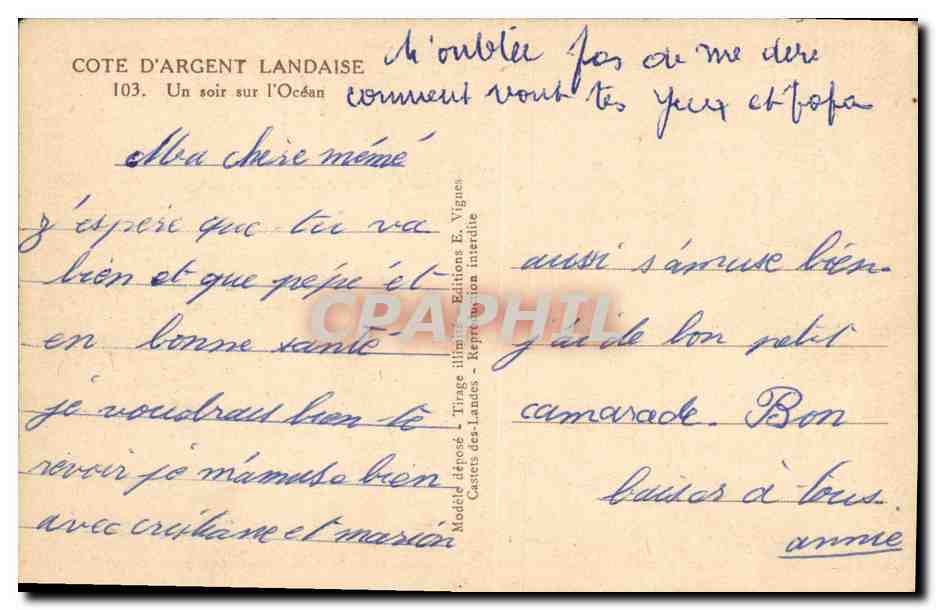 COTE D'ARGENT LANDAISE
103. Un soir sur l'Océan
N'oublée pas de me dire
comment vont tes yeux et papa
Ma chère mémé
j'espère que tu va
bien et que pépé ét
en bonne santé
je voudrais bien te
revoir je m'amuse bien
avec cristiane et marion
Modèle déposé - Tirage illimité - Editions E. Vignes
Castets des-Landes - Reproduction interdite
aussi s'amuse bien.
j'ai de bon petit
camarade. Bon
baiser à tous.
annie
CPARPHIL